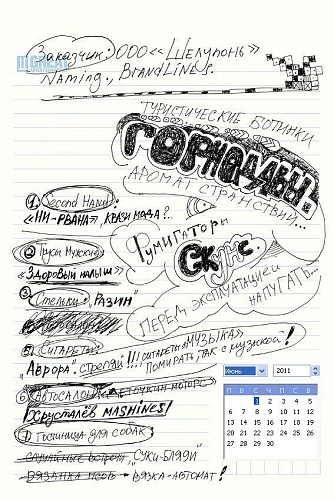 Заказчик: ООО «Шелупонь»
Naming, BrandLines.
ТУРИСТИЧЕСКИЕ БОТИНКИ
ГОРНАДЫ!
АРОМАТ СТРАНСТВИЙ...
1. Second Hand:
«НИ-РВАНА», квази мода?..
Румигаторы
СКУНС
2 Трусы Мужские
«Здоровый малыш»
ПЕРЕД ЭКСПЛУАТАЦИЕЙ
НАПУГАТЬ...
3 Стельки: „РАЗИН"
5) Сигареты:
"Аврора". Стреляй!!! сигареты «МУЗЫКА»
ПОМИРАТЬ ТАК С МУЗЫКОЙ!
6 АВТОСАЛОН:
Хрусталёв MASHINES!
7 Гостиница для собак:
"СУКИ-БЛЯДИ"
ВЯЗКА-АВТОМАТ!
Июнь 2011
П В С Ч П С В
1 2 3 4 5
6 7 8 9 10 11 12
13 14 15 16 17 18 19
20 21 22 23 24 25 26
27 28 29 30